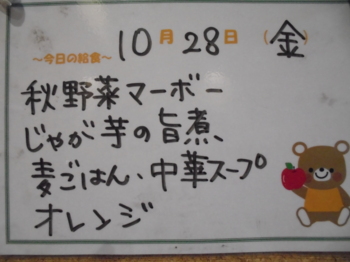 10月28日(金)
～今日の給食～
秋野菜マーボー
じゃが芋の旨煮、
麦ごはん、中華スープ
オレンジ